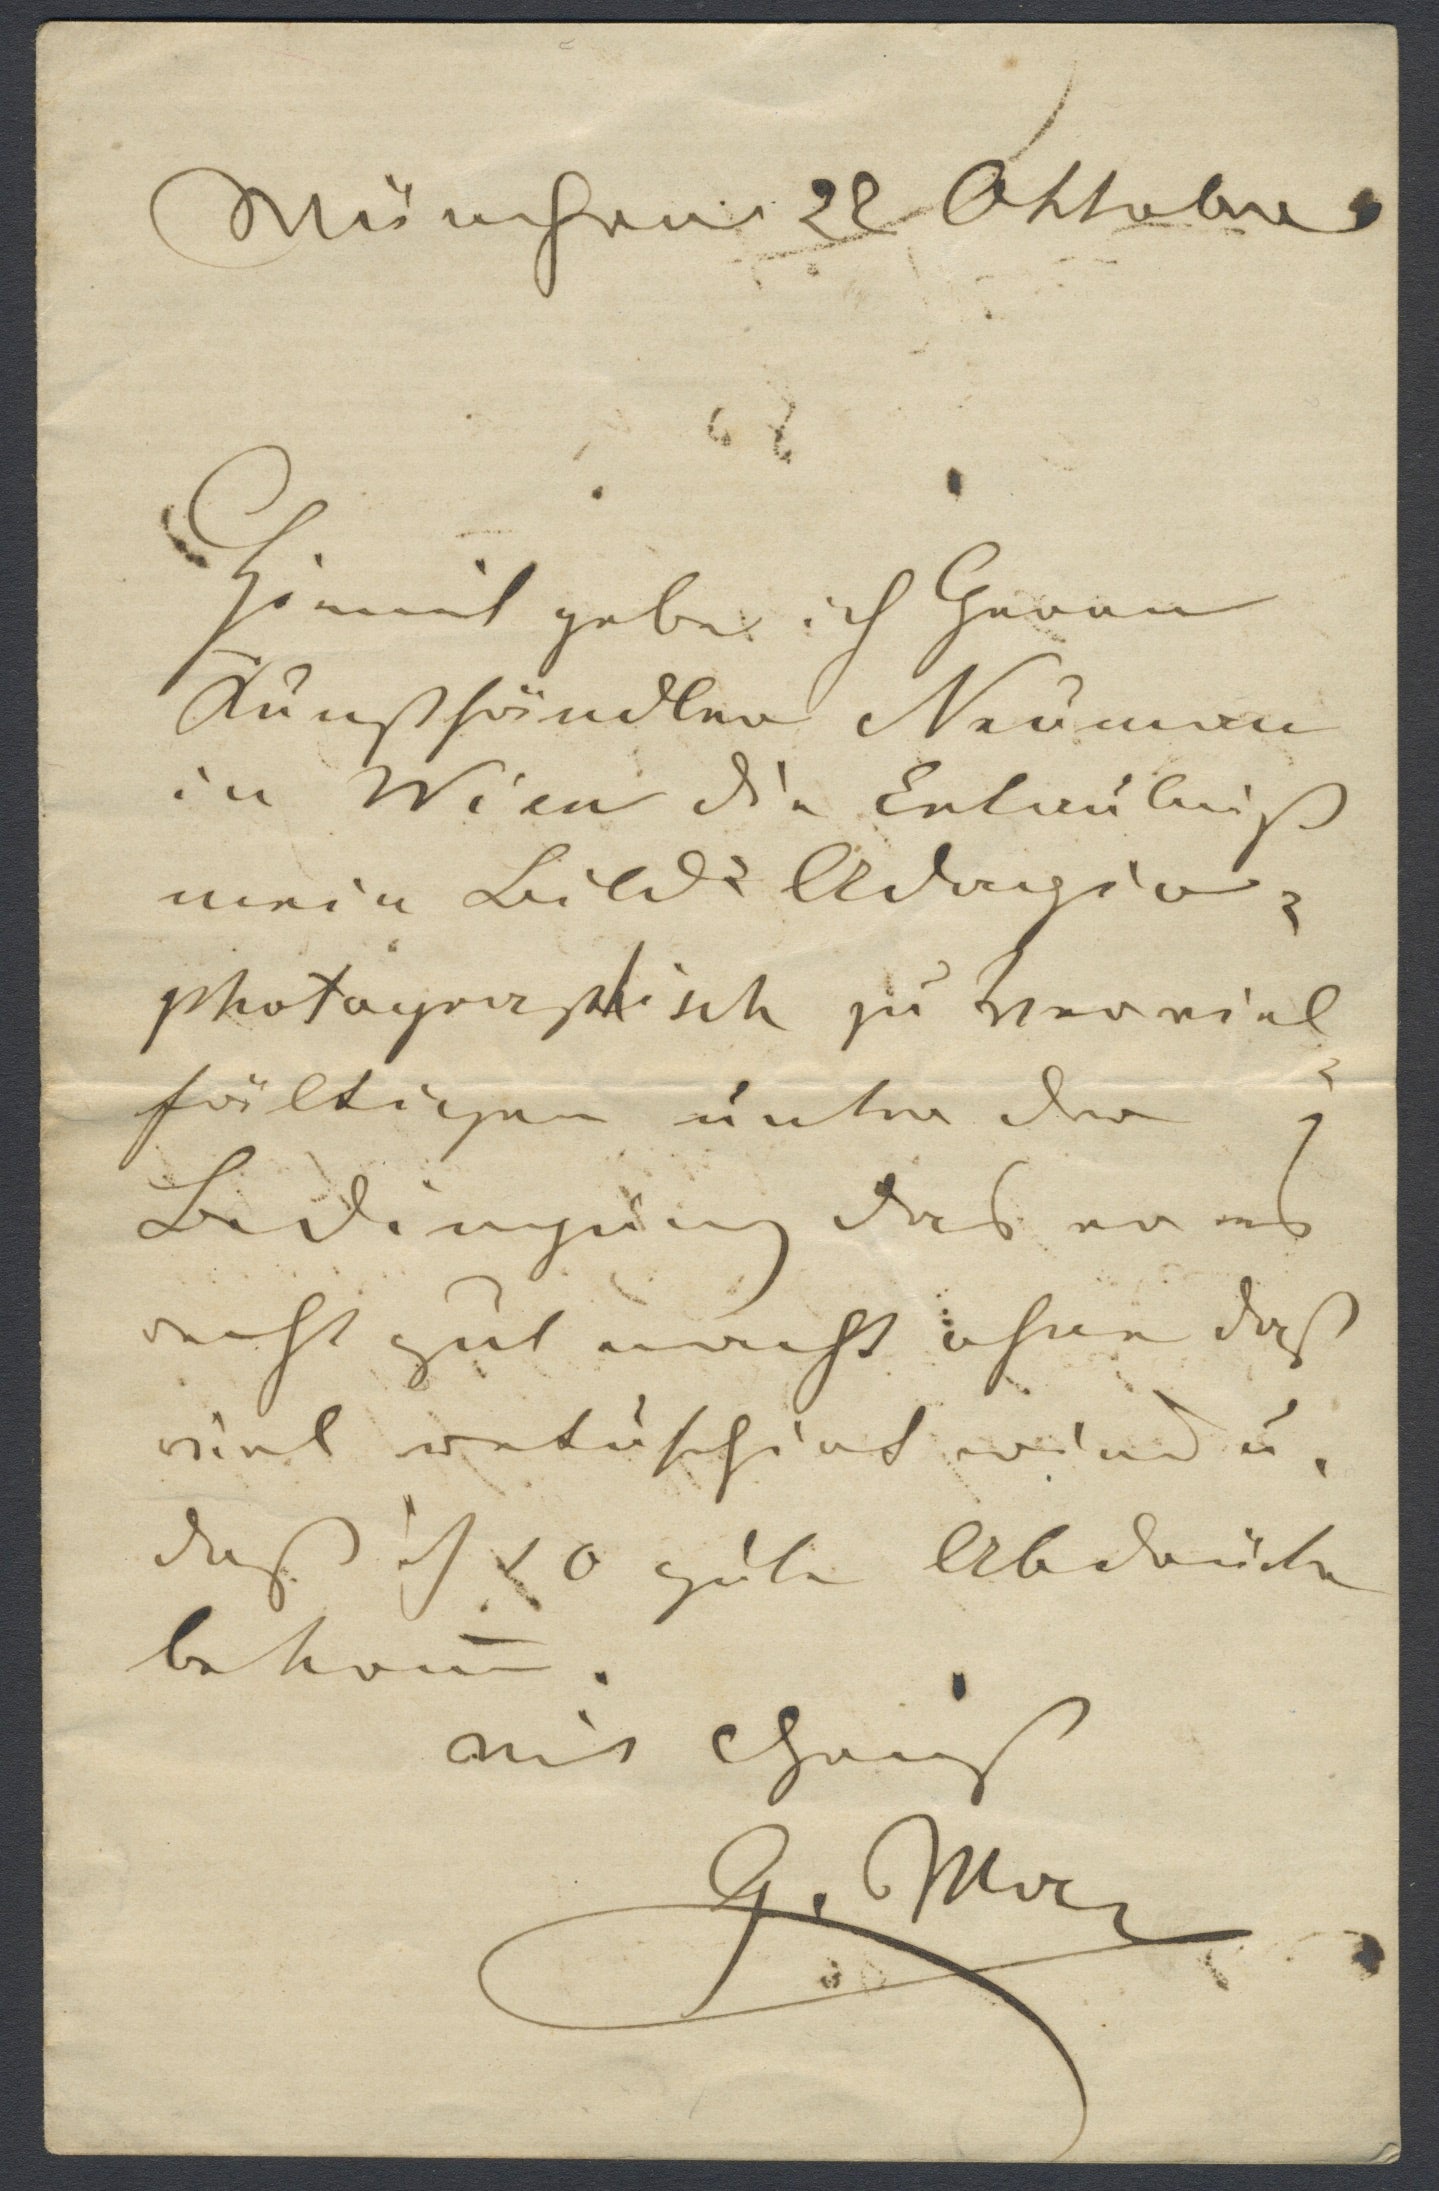 München 22 Oktober
Hiemit gebe ich Herrn
Kunsthändler Neuman
in Wien die Erlaubniß
mein Bild: Adagio,
photographisch zu verviel
fältigen unter der
Bedingung das er es
recht gut macht ohne daß
viel retuschirt wird u.
daß ich 10 gute Abdrücke
bekom̅.
mit Gruß
G. Max